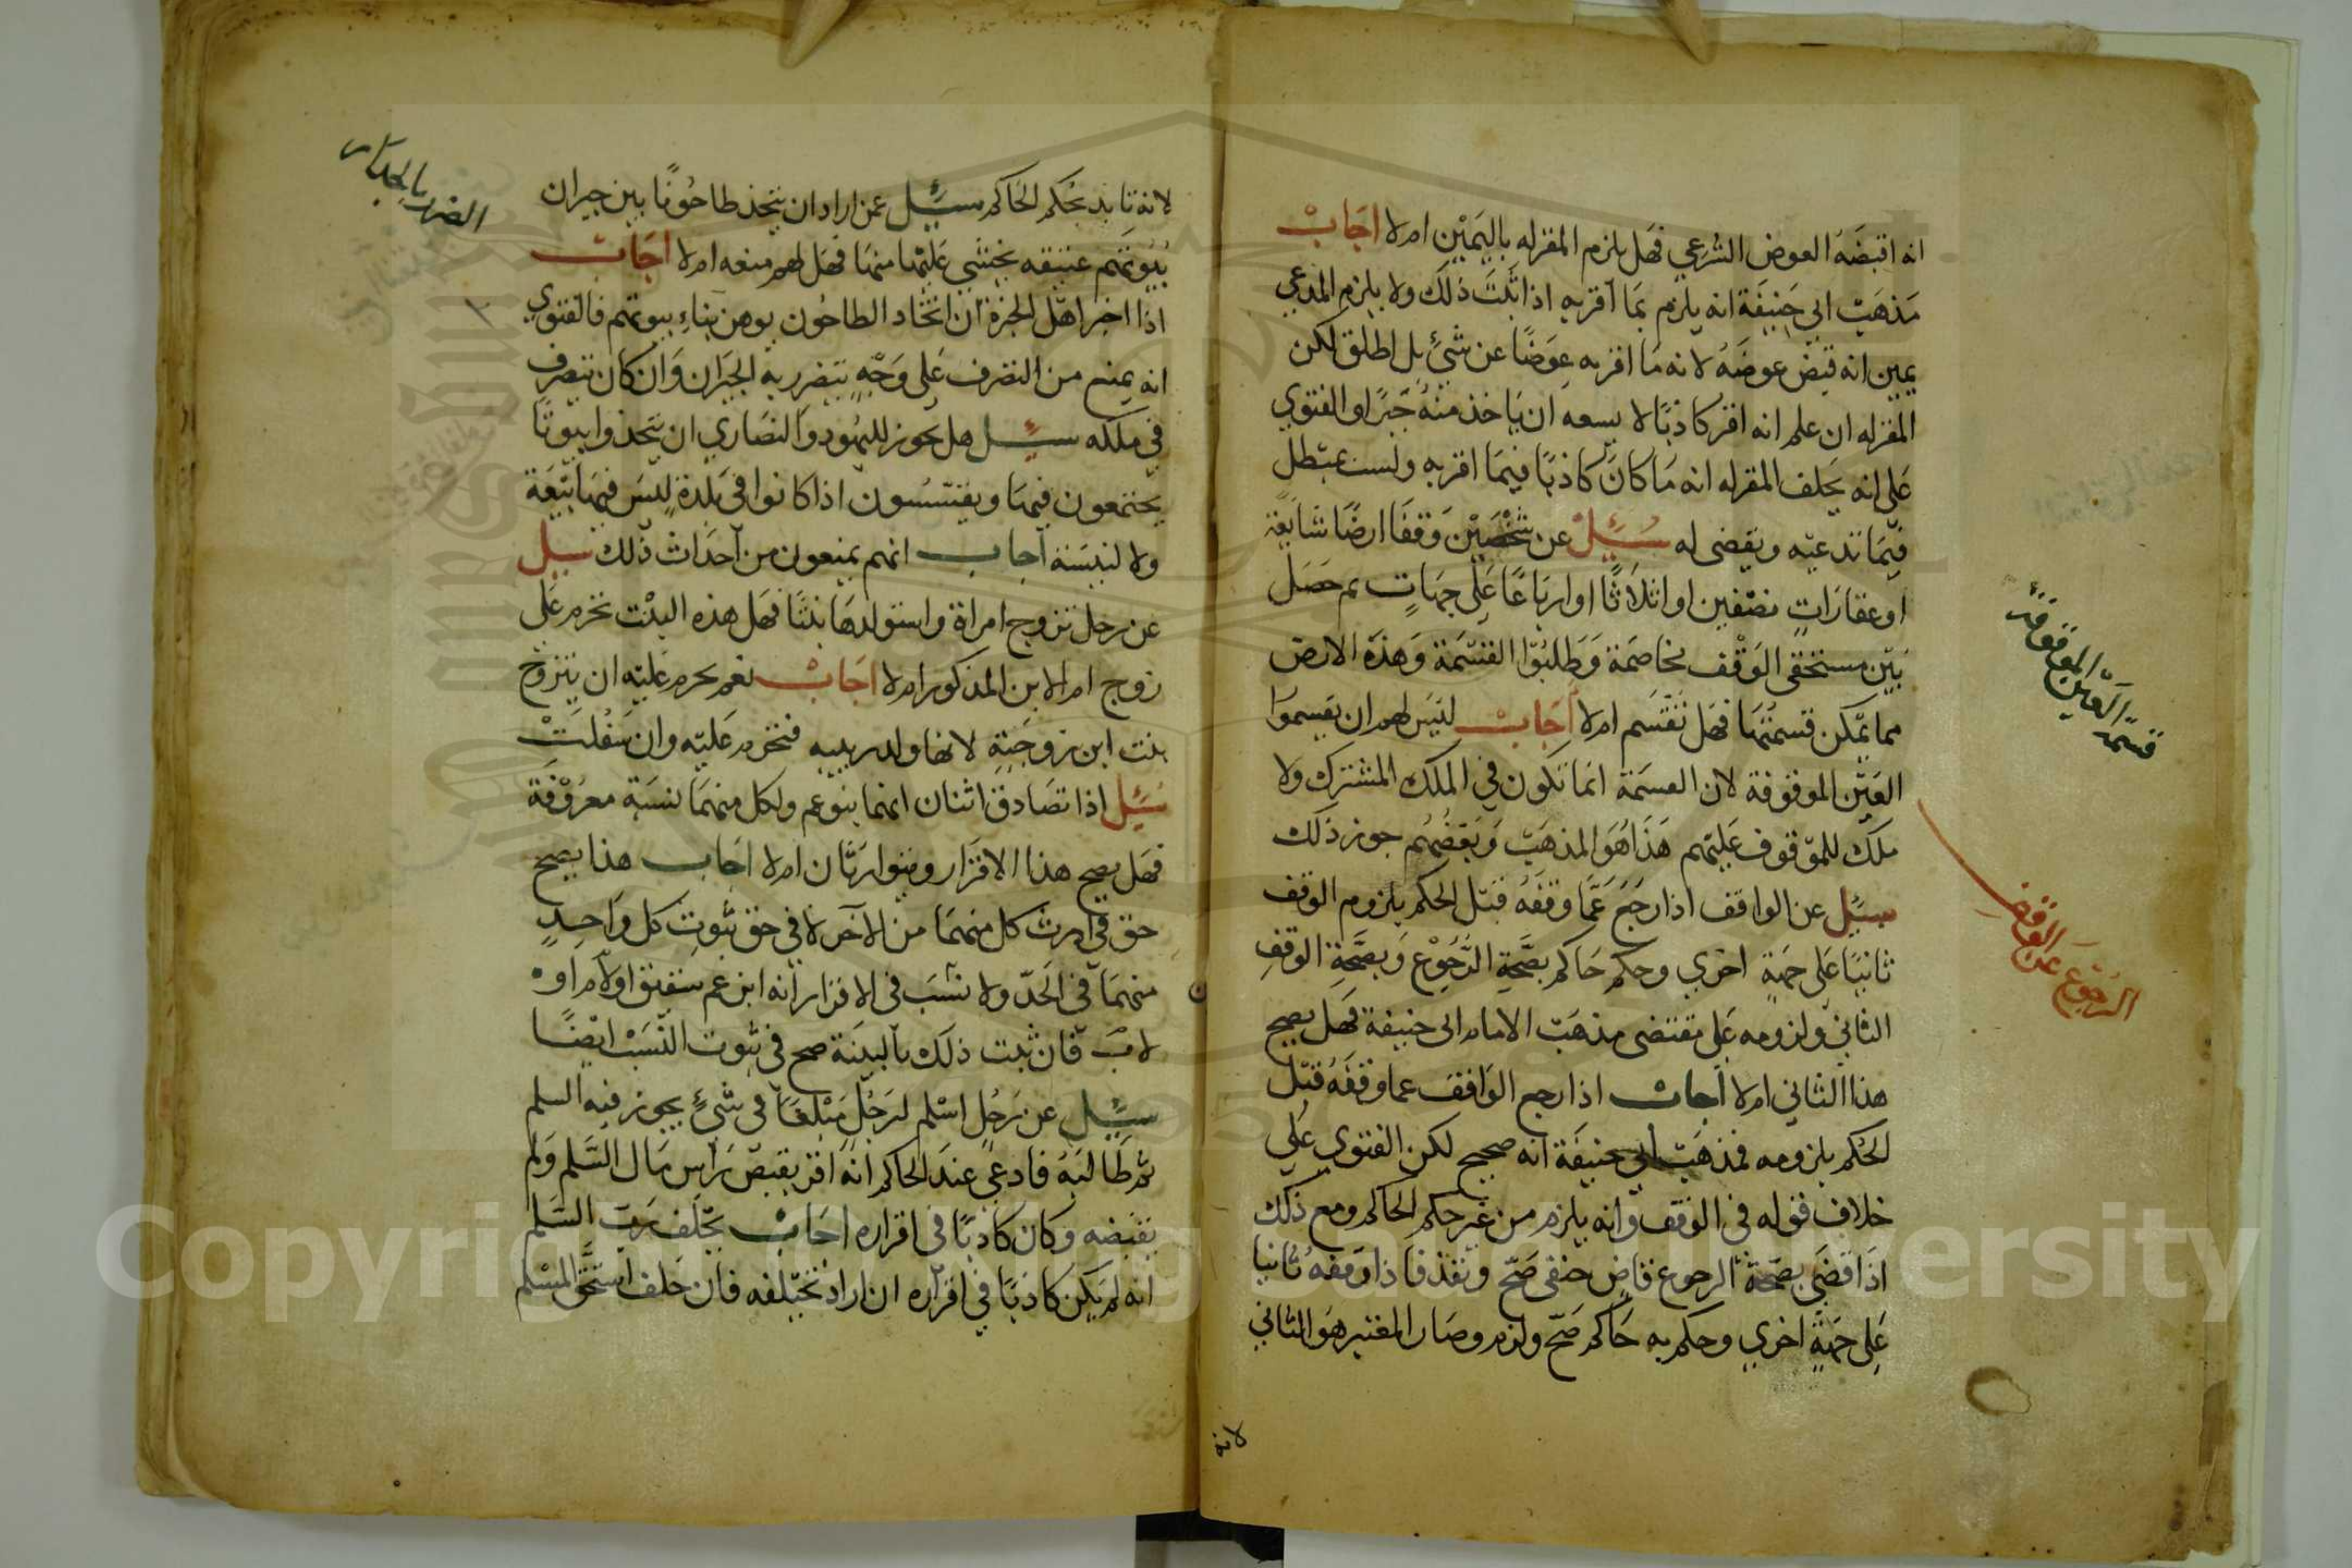 انه اقبضه العوض الشرعي فهل يلزم المقر له باليمين ام لا اجاب
مذهب ابي حنيفة انه يلزم بما اقر به اذا ثبت ذلك ولا يلزم المدعي
يمين انه قبض عوضه لانه ما اقر به عوضا عن شئ بل اطلق لكن
المقر له ان علم انه اقر كاذبا لا يسعه ان ياخذ منه جبرا والفتوي
علي انه يحلف المقر له انه ما كان كاذبا فيما اقر به ولست بمبطل
فيما تدعيه ويقضى له سئل عن شخصين وقفا ارضا شايعة
او عقارات نصفين او اثلاثا او ارباعا علي جهات ثم حصل
بين مستحقي الوقف مخاصمة وطلبوا القسمة وهذه الارض
مما يمكن قسمتها فهل تقسم ام لا اجاب ليس لهم ان يقسموا
العين الموقوفة لان القسمة انما تكون في الملك المشترك ولا
ملك للموقوف عليهم هذا هو المذهب وبعضهم جوز ذلك
سئل عن الواقف اذا رجع عما وقفه قبل الحكم بلزوم الوقف
ثانيا علي جهة اخري وحكم حاكم بصحة الرجوع وبصحة الوقف
الثاني ولزومه علي مقتضى مذهب الامام ابي حنيفة فهل يصح
هذا الثاني ام لا اجاب اذا رجع الواقف عما وقفه قبل
الحكم بلزومه فمذهب ابي حنيفة انه صحيح لكن الفتوي علي
خلاف قوله في الوقف وانه يلزم من غير حكم الحاكم ومع ذلك
اذا قضي بصحة الرجوع قاض حنفي صح ونفذ فاذا وقفه ثانيا
علي جهة اخري وحكم به حاكم صح ولزم وصار المعتبر هو الثاني
لانه
قسمة العين الموقوفة
الرجوع عن الوقف
لانه تايد بحكم الحاكم سئل عمن اراد ان يتخذ طاحونا بين جيران
بيوتهم عتيقه يخشي عليها منها فهل لهم منعه ام لا اجاب
اذا اخبر اهل الخبرة ان اتخاد الطاحون يوهن بناء بيوتهم فالفتوي
انه يمنع من التصرف علي وجه يتضرر به الجيران وان كان يتصرف
في ملكه سئل هل يجوز لليهود والنصاري ان يتخذوا بيوتا
يجتمعون فيها ويفتسسون اذا كانوا في بلدة ليس فيها بيعة
ولا كنيسة اجاب انهم يمنعون من احداث ذلك سئل
عن رجل تزوج امراة واستولدها بنتا فهل هذه البنت تحرم علي
زوج ام الابن المذكور ام لا اجاب نعم يحرم عليه ان يتزوج
بنت ابن زوجته لانها ولد ربيبه فتحرم عليه وان سفلت
سئل اذا تصادق اثنان انهما بنو عم ولكل منهما نسبة معروفة
فهل يصح هذا الاقرار ويتوارثان ام لا اجاب هذا يصح
حق في ارث كل منهما من الآخر لا في حق ثبوت كل واحد
منهما في الحد ولا نسب في الاقرار انه ابن عم شقيق او لام او
لاب فان ثبت ذلك بالبينة صح في ثبوت النسب ايضا
سئل عن رجل اسلم لرجل مبلغا في شئ يجوز فيه السلم
ثم طالبه فادعي عند الحاكم انه اقر بقبض راس مال السلم ولم
يقبضه وكان كاذبا في اقراره اجاب يحلف رب السلم
انه لم يكن كاذبا في اقراره ان اراد تحليفه فان حلف استحق المسلم
الضرر بالجار